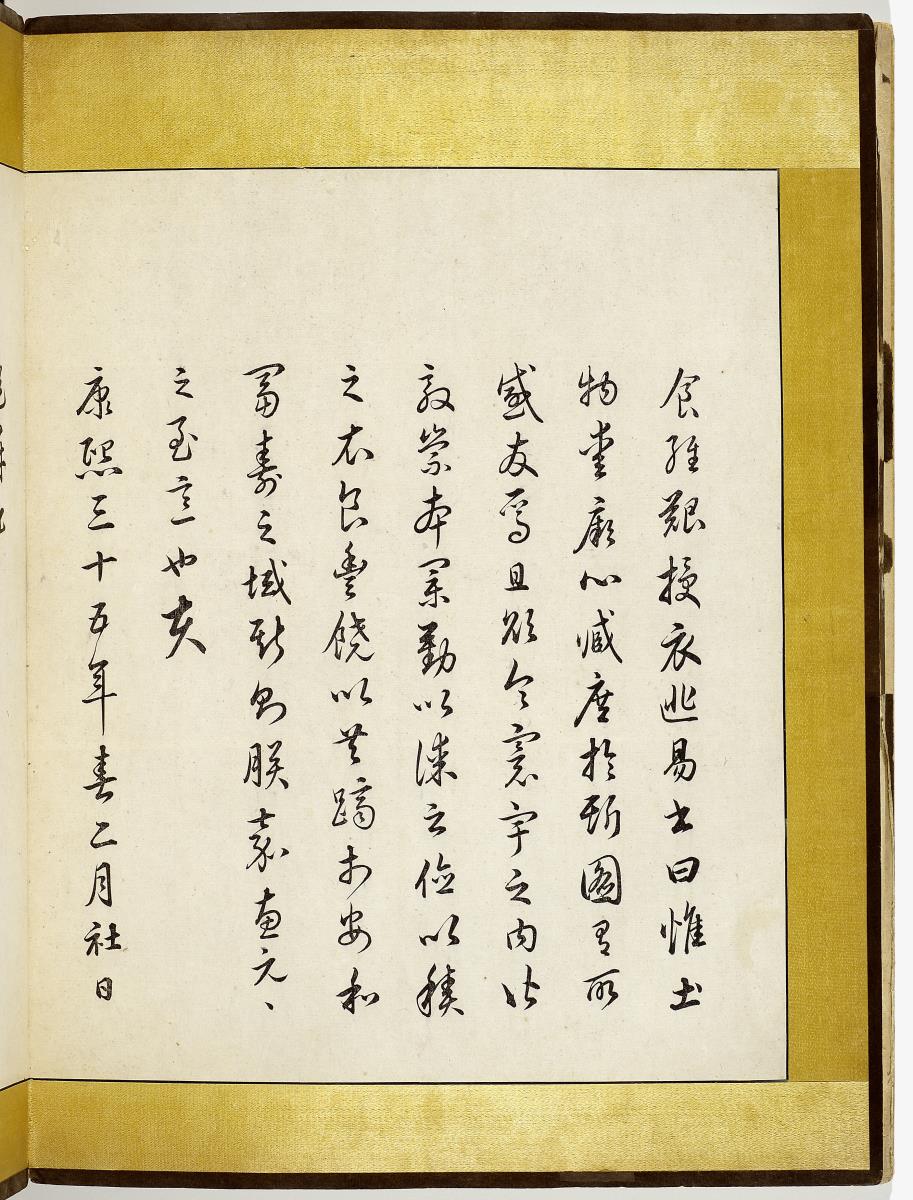 食維艱授衣匪易書曰惟土
物愛厥心臧庶於斯圖有所
感發焉且欲令寰宇之內皆
敦崇本業勤以謀之儉以積
之衣食豐饒以共躋於安和
富壽之域斯則朕嘉惠元〻
之至意也夫
康熙三十五年春二月社日